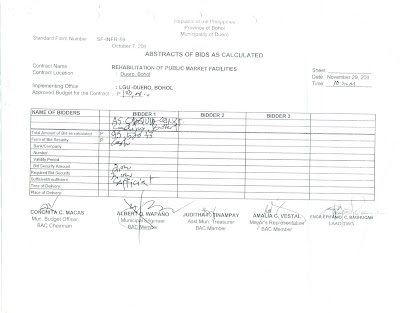 Republic of the Philippines
Province of Bohol
Municipality of Duero
Standard Form Number SF-INFR-59
October 7, 200
ABSTRACTS OF BIDS AS CALCULATED
Contract Name REHABILITATION OF PUBLIC MARKET FACILITIES
Contract Location : Duero, Bohol
Sheet
Date: November 29, 200
Time:
Implementing Office : LGU -DUERO, BOHOL
Approved Budget for the Contract P
NAME OF BIDDERS BIDDER 1 BIDDER 2 BIDDER 3
Total Amount of Bid as calculated P
Form of Bid Security P Cash
Bank/Company
Number
Validity Period
Bid Security Amount
Required Bid Security
Sufficient/Insufficient Sufficient
Time of Delivery
Place of Delivery
CONCHITA C. MACAS ALBERT O. WAPANO JUDITHA TINAMPAY AMALIA C. VESTAL
Mun. Budget Officer Municipal Engineer Asst Mun. Treasurer Mayor's Representative
BAC Chairman BAC Member BAC Member BAC Member